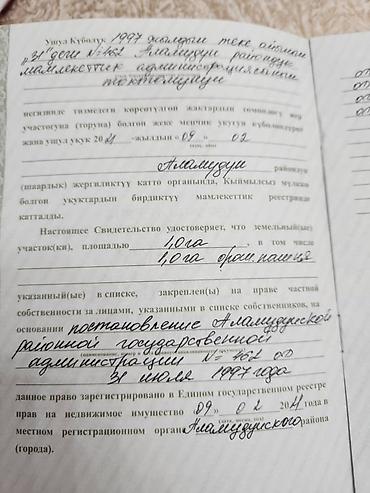 Ушул Күбөлүк 1997 жылдын теке айынын
„31" деги № 462 Аламудун райондук
мамлекеттик администрациясынын
токтомунун
негизинде тизмедеги көрсөтүлгөн жактардын төмөнкү жер
участогуна (торуна) болгон жеке менчик укугун күбөлөндүрөт
жана ушул укук 20 -жылдын « 09 » 02
Аламудун райондун
(шаардык) жергиликтүү катто органында, Кыймылсыз мүлккө
болгон укуктардын бирдиктүү мамлекеттик реестринде
катталды.
Настоящее Свидетельство удостоверяет, что земельный(ые)
участок(ки), площадью 1,0 га , в том числе
1,0 га орош. пашня
указанный(ые) в списке, закреплен(ы) на праве частной
собственности за лицами, указанными в списке собственников, на
основании постановление Аламудунской
районной государственной
администрации № 462 от
31 июля 1997 года
данное право зарегистрировано в Едином государственном реестре
прав на недвижимое имущество « 09 » 02 20 года в
местном регистрационном органе Аламудунского района
(города).